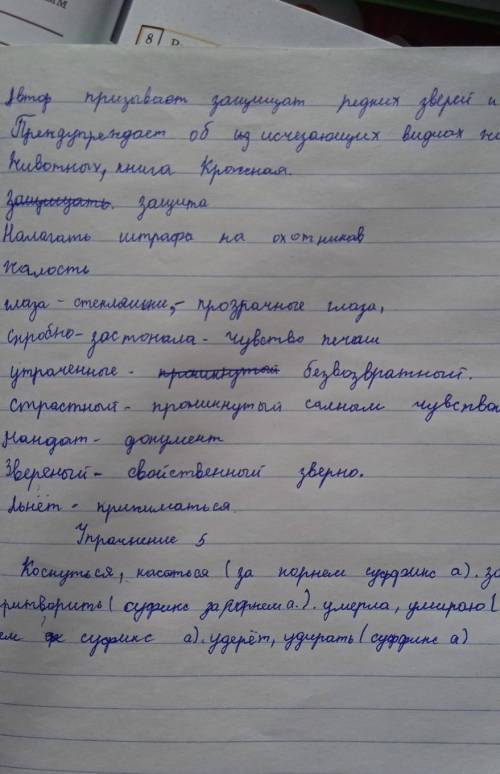 8
Автор призывает защищат редких зверей и
Прендупрендает об из исчезающих видиах жи
Животных, книга Кросная.
Защищать. защита
Налагать штрафа на охотникав
Жалость
глаза - стекляшки, - прозрачные глаза,
скробно - застонала - чувство печали
утраченные - проникнутый безвозвратный.
Страстный - проникнутый салном чувства
Мандат - документ
Звереный - свойственный зверю.
Льнёт - прижиматься.
Упражнение 5
Коснуться, касаться (за корнем суффикс а). за
притворить (суфикс за корнем а.). умерла, умираю (
ем суфикс а). удерёт, удирать (суффикс а)